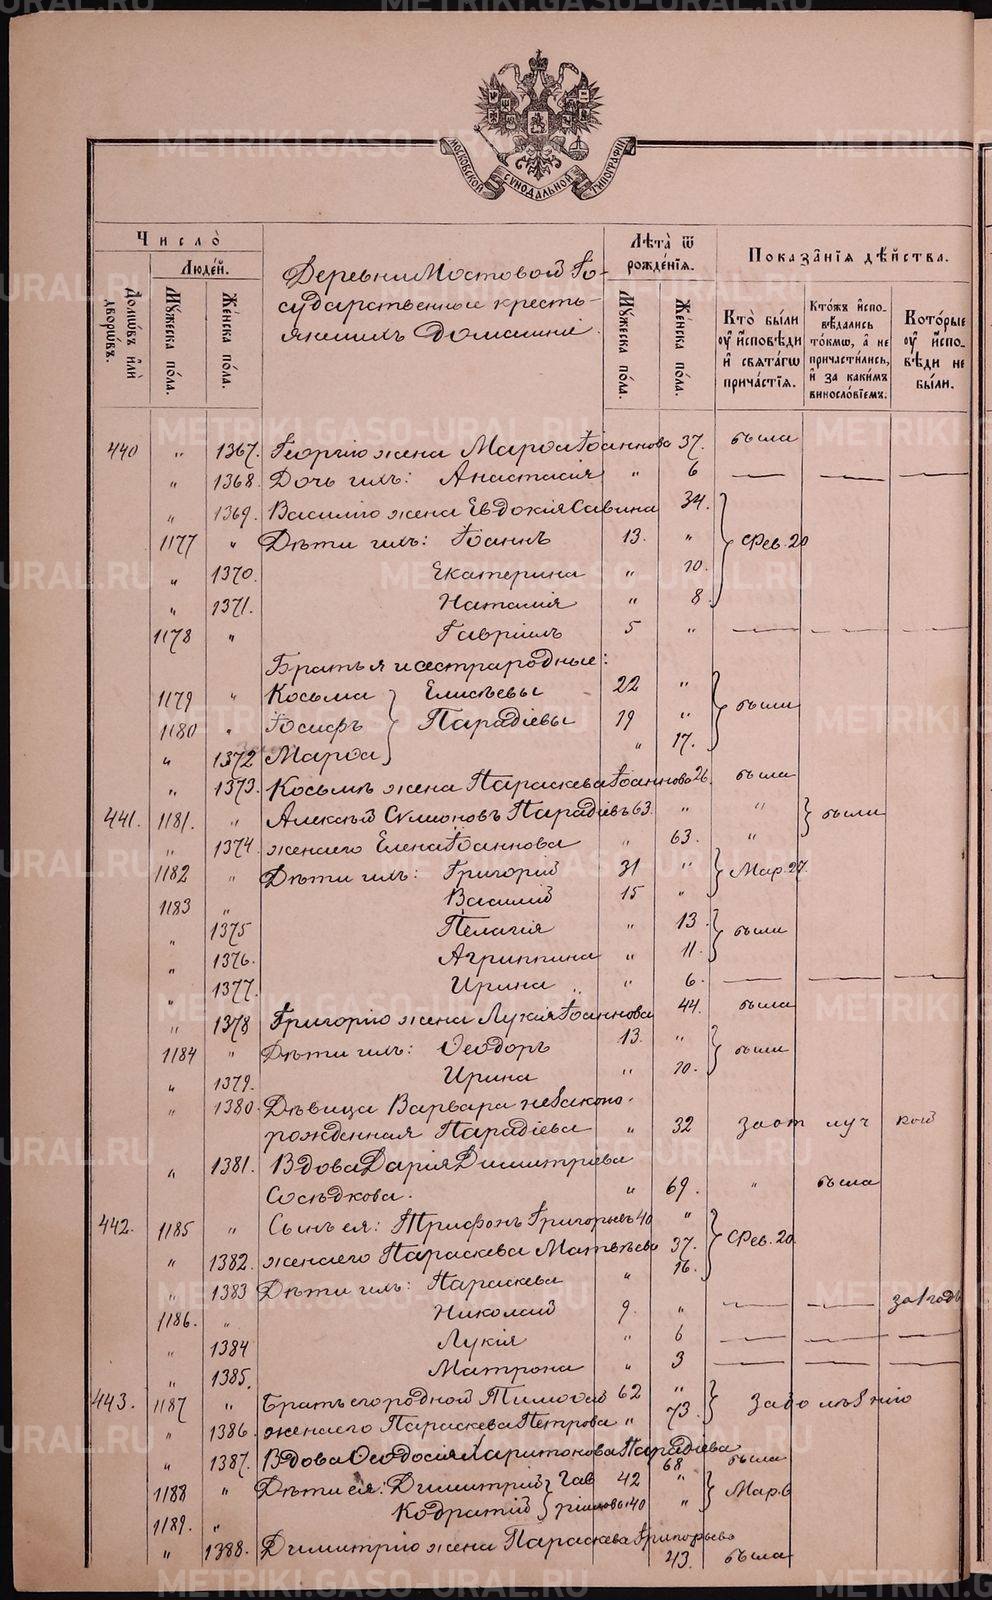 МОСКОВСКОЙ СѴНОДАЛЬНОЙ ТИПОГРАФІИ
Число̀
Людей.
Домѡвъ и҆лѝ дворѡ́въ.
Мꙋ́жеска по́ла.
Же́нска по́ла.
Деревни Мостовой Го-
сударственные кресть-
яне и ихъ Домашніе.
Лѣ́та ѿ рожде́нїѧ.
Мꙋ́жеска по́ла.
Же́нска по́ла.
Показа̑нїѧ дѣ́йства.
Кто̀ бы́ли оу҆ и҆́сповѣди и҆ свѧта́гѡ прича́стїѧ.
Кто́жъ и҆спо-вѣ́дались то́кмѡ, а҆ не причасти́лись, и҆ за каки́мъ виносло́вїемъ.
Кото́рые оу҆ и҆́спо-вѣди не бы́ли.
440 " 1367. Георгію жена Марѳа Іоаннова 37. была
" 1368. Дочь ихъ: Анастасія " 6 — — —
" 1369. Василію жена Евдокія Савина 34.
1177 " Дѣти ихъ: Іоаннъ 13. " Фев. 20
" 1370. Екатерина " 10.
" 1371. Наталія " 8
1178 " Гавріилъ 5 " — — —
Братья и сестра родные:
1179 " Косьма Елисѣевы 22 "
1180 " Іосифъ Парадіевы 19 " были
" 1372 Марѳа " 17.
" 1373. Косьмѣ жена Параскева Іоаннова 26. была
441. 1181. " Алексѣй Симоновъ Парадіевъ 63. " " были
" 1374. жена его Елена Іоаннова " 63. "
1182 " Дѣти ихъ: Григорій 31 " Мар. 27.
1183 " Василій 15 "
" 1375 Пелагія " 13 были
" 1376. Агриппина " 11.
" 1377. Ирина " 6. — — —
" 1378 Григорію жена Лукія Іоаннова 44. была
1184 " Дѣти ихъ: Ѳеодоръ 13. " были
" 1379. Ирина " 10.
" 1380. Дѣвица Варвара незаконо-
рожденная Парадіева " 32 за от луч кой
" 1381. Вдова Дарія Димитріева
Сосѣдкова. " 69. " была
442. 1185 " Сынъ ея: Трифонъ Григорьевъ 40 " Фев. 20.
" 1382. жена его Параскева Матвѣева 37.
" 1383 Дѣти ихъ: Параскева " 16.
1186. " Николай 9. " — — за 1 годъ
" 1384 Лукія " 6 — — —
" 1385. Матрона " 3 — — —
443. 1187 " Братъ его родной Тимоѳей 62 " За болѣзнію
" 1386. жена его Параскева Петрова " 73
" 1387. Вдова Ѳеодосія Харитонова Парадіева 68 была
1188 " Дѣти ея: Димитрій Гав 42 " Мар. 6
1189. " Кодратій риловы 40 "
" 1388. Димитрію жена Параскева Григорьева 43. была
METRIKI.GASO-URAL.RU